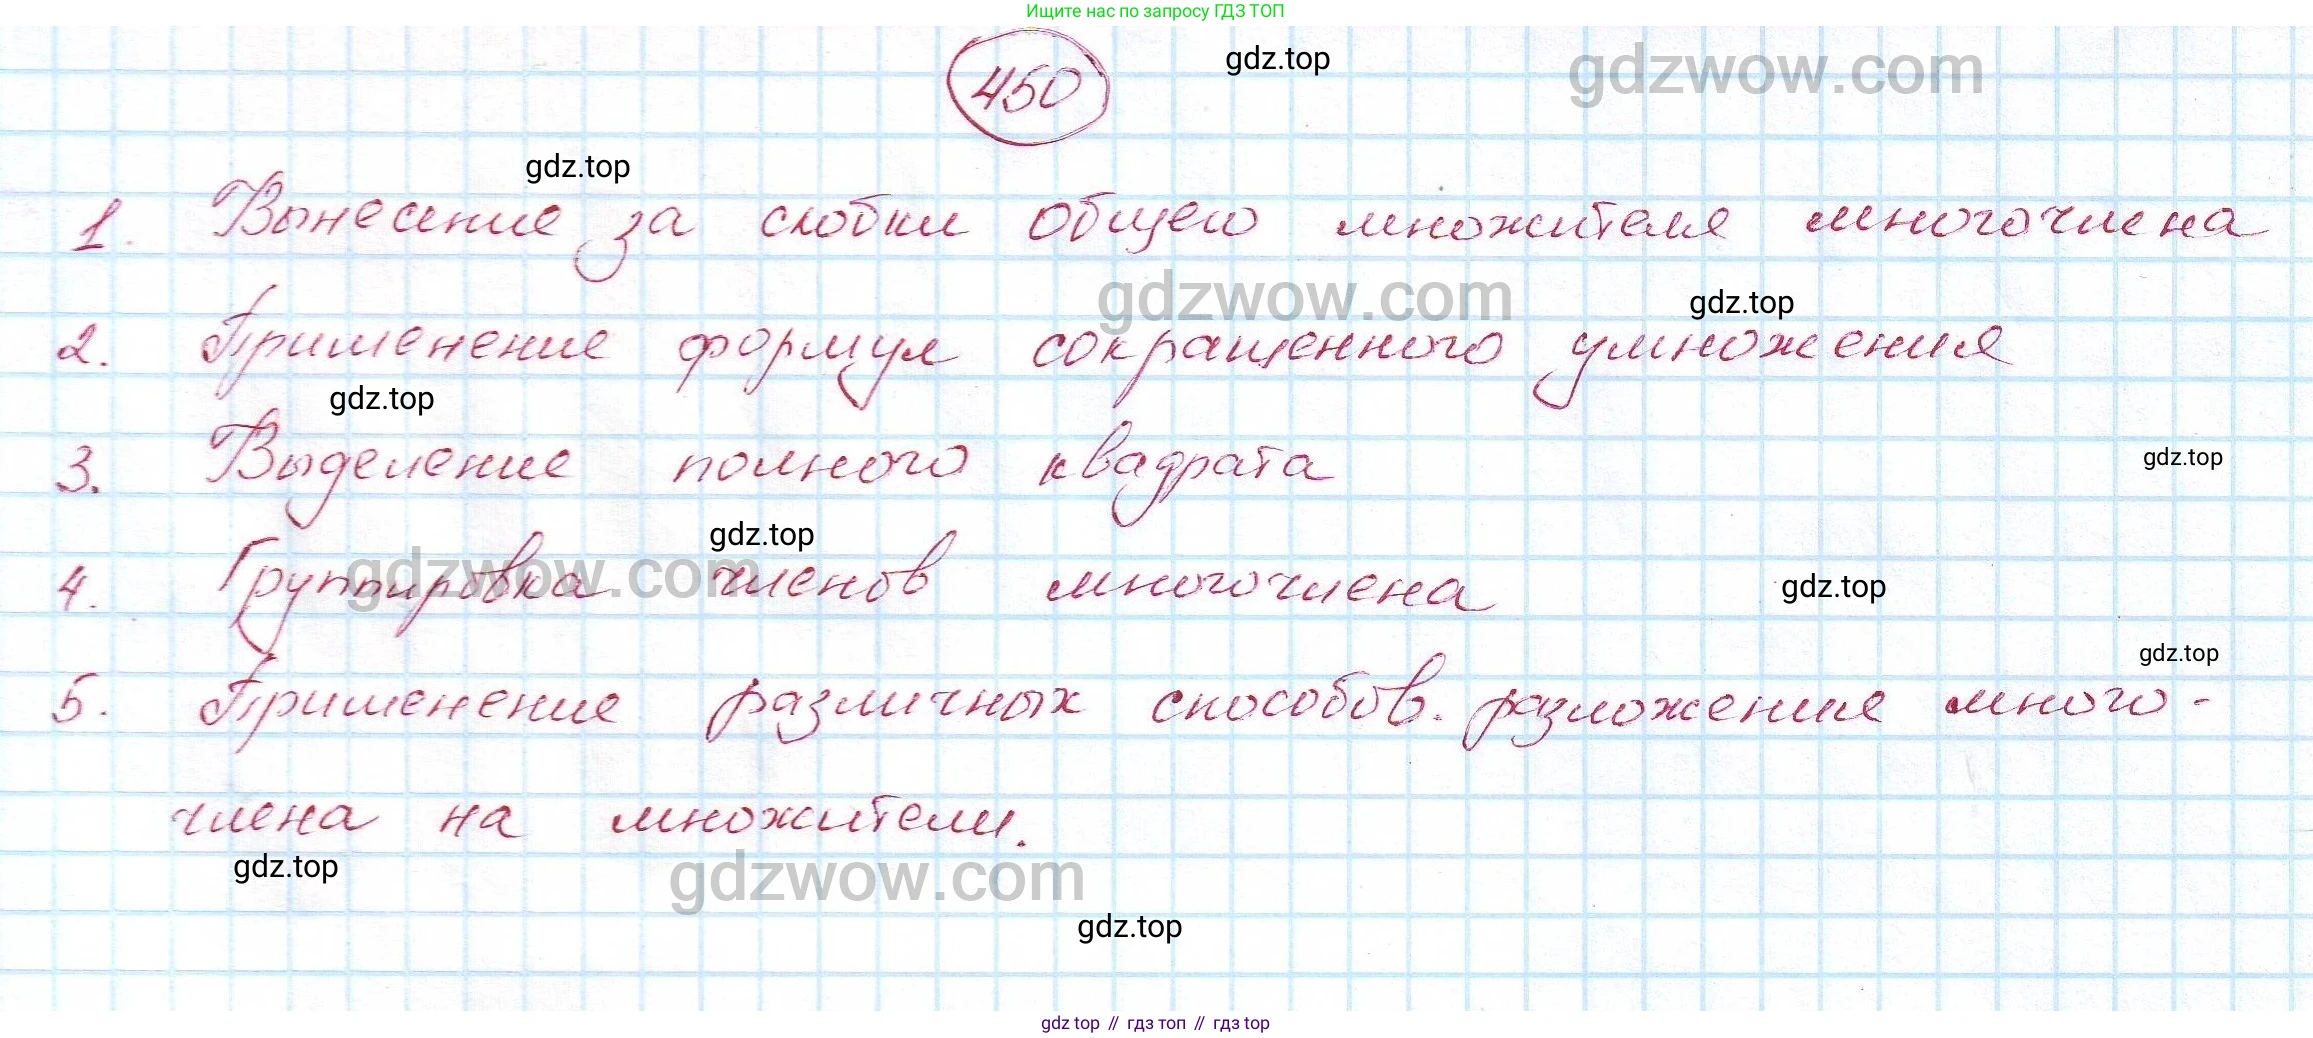 Ищите нас по запросу ГДЗ ТОП
450
gdz.top
gdzwow.com
gdz.top
1. Вынесение за скобки общего множителя многочлена
gdzwow.com
gdz.top
2. Применение формул сокращенного умножения
gdz.top
3. Выделение полного квадрата
gdz.top
gdz.top
gdzwow.com
4. Группировка членов многочлена
gdz.top
gdz.top
5. Применение различных способов разложения много-
члена на множители.
gdz.top
gdzwow.com
gdz.top
gdz top // гдз топ // гдз top